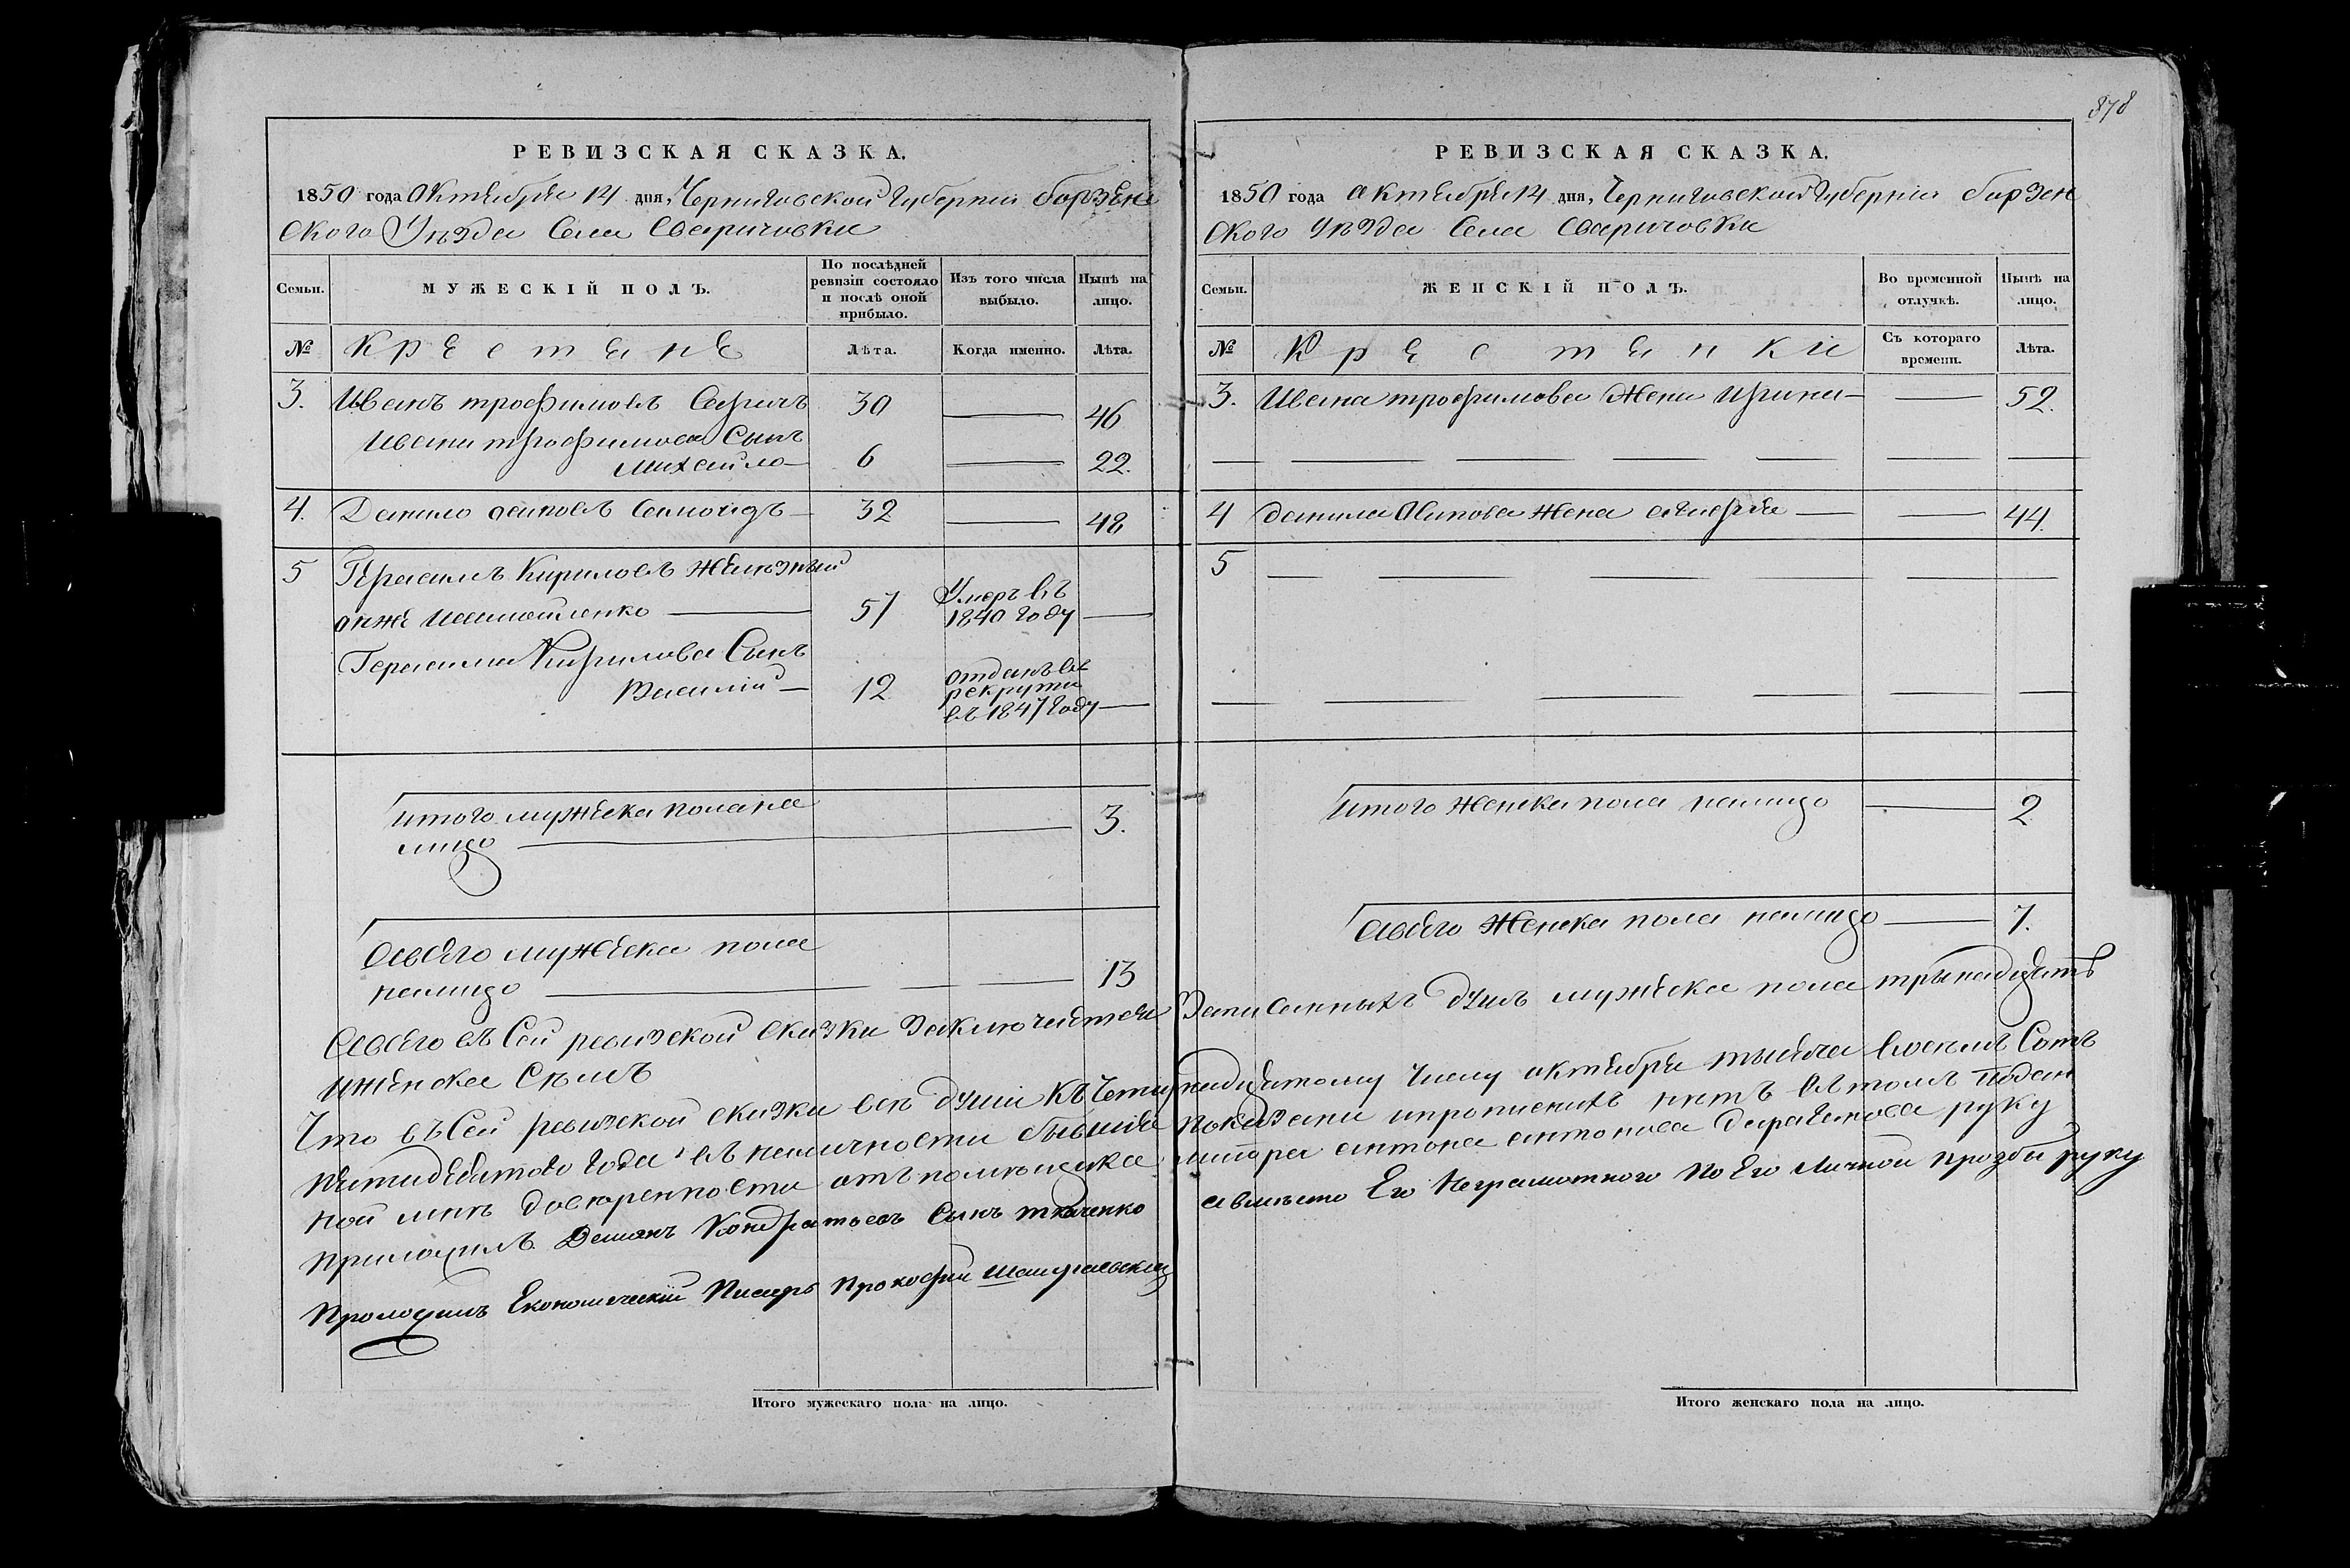 878
РЕВИЗСКАЯ СКАЗКА.
1850 года Октября 14 дня, Черниговской губернии борзен
ского Уѣзда Села Сваричовки
Семьи.
МУЖЕСКІЙ ПОЛЪ.
По послѣдней ревизіи состояло и послѣ оной прибыло.
Изъ того числа выбыло.
Нынѣ на лицо.
№
Крестяне
Лѣта.
Когда именно.
Лѣта.
3. Иванъ трофимовъ 30 — 46
Ивана трофимова Сынъ
Михайло — 6 — 22.
4. Данило осиповъ — 32 — 48
5 Герасимъ Кириловъ Желѣзный
онже — 57 Умеръ въ 1840 году —
Герасима Кирилова Сынъ
Василій — 12 отданъ въ рекруты въ 1847 году —
итого мужеска пола на
лицо — 3.
Всего мужеска пола
налицо — 13
РЕВИЗСКАЯ СКАЗКА.
1850 года октября 14 дня, Черниговской губерніи борзен
ского уѣзда Села Сваричовки
Семьи.
ЖЕНСКІЙ ПОЛЪ.
Во временной отлучкѣ.
Нынѣ на лицо.
№
Крестянки
Съ котораго времени.
Лѣта.
3. Ивана трофимова Жена Ирина — — 52.
4 данила Осипова жена — — 44.
5
итого женска пола налицо — 2
Всего женска пола налицо — 7.
Всего въ Сей ревизской сказки заключается Записанныхъ душъ мужеска пола трынадцать
иженска Семъ
Что въ Сей ревизской сказки всѣ души къ Четырнадцатому Числу октября тысяча восемъ Сотъ
пятидесятого года въ наличности бывшие показани ипрописнихъ нѣтъ вътомъ поданной
мнѣ довѣренности отъ помѣщика антона антонова руку
приложилъ Демянъ Кондратьевъ Сынъ ткаченко авместо Его Неграмотного по Его Личной прозбы руку
Проложилъ Економический Писарь Прокофий
Итого мужескаго пола на лицо.
Итого женскаго пола на лицо.